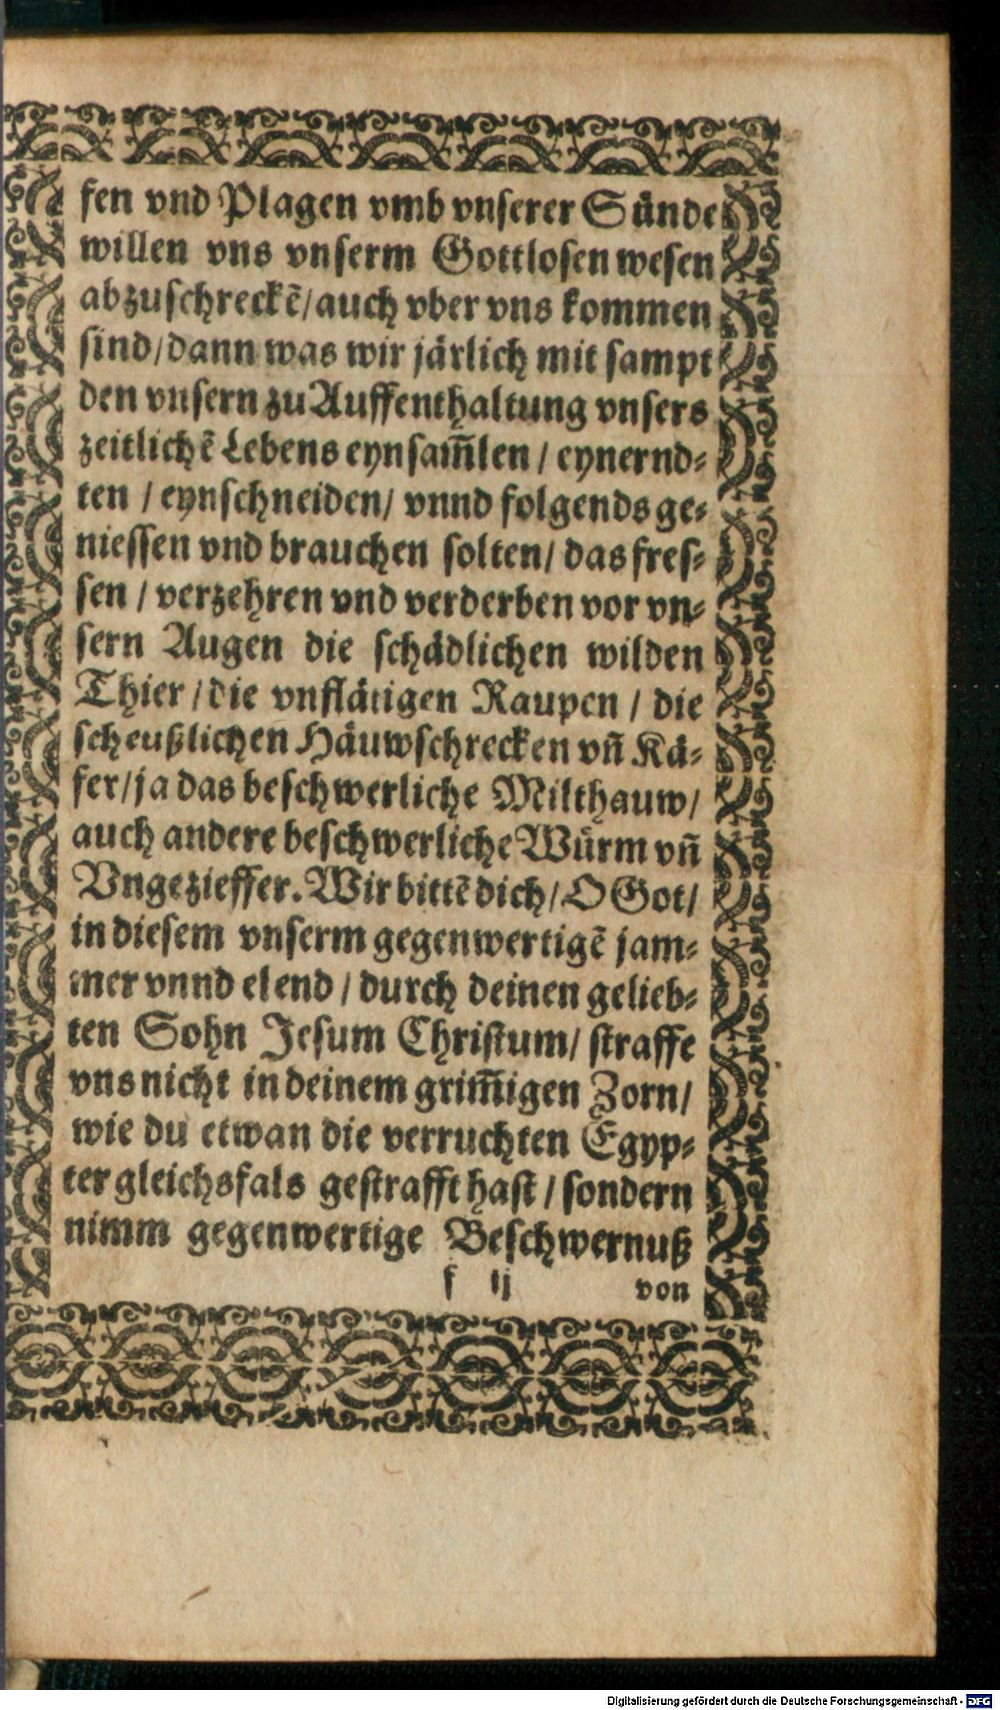 fen vnd Plagen vmb vnserer Sünde
willen vns vnserm Gottlosen wesen
abzuschreckẽ/ auch vber vns kommen
sind/ dann was wir järlich mit sampt
den vnsern zu Auffenthaltung vnsers
zeitlichẽ Lebens eynsam̃len / eynernd⸗
ten / eynschneiden/ vnnd folgends ge⸗
niessen vnd brauchen solten/ das fres⸗
sen / verzehren vnd verderben vor vn⸗
sern Augen die schädlichen wilden
Thier / die vnflätigen Raupen / die
scheußlichen Häuwschrecken vñ Kä⸗
fer/ ja das beschwerliche Milthauw/
auch andere beschwerliche Würm vñ
Vngezieffer. Wir bittẽ dich/ O Got/
in diesem vnserm gegenwertigẽ jam⸗
mer vnnd elend / durch deinen gelieb⸗
ten Sohn Jesum Christum/ straffe
vns nicht in deinem grim̃igen Zorn/
wie du etwan die verruchten Egyp⸗
ter gleichsfals gestrafft hast / sondern
nimm gegenwertige Beschwernuß
f ij von
Digitalisierung gefördert durch die Deutsche Forschungsgemeinschaft - DFG